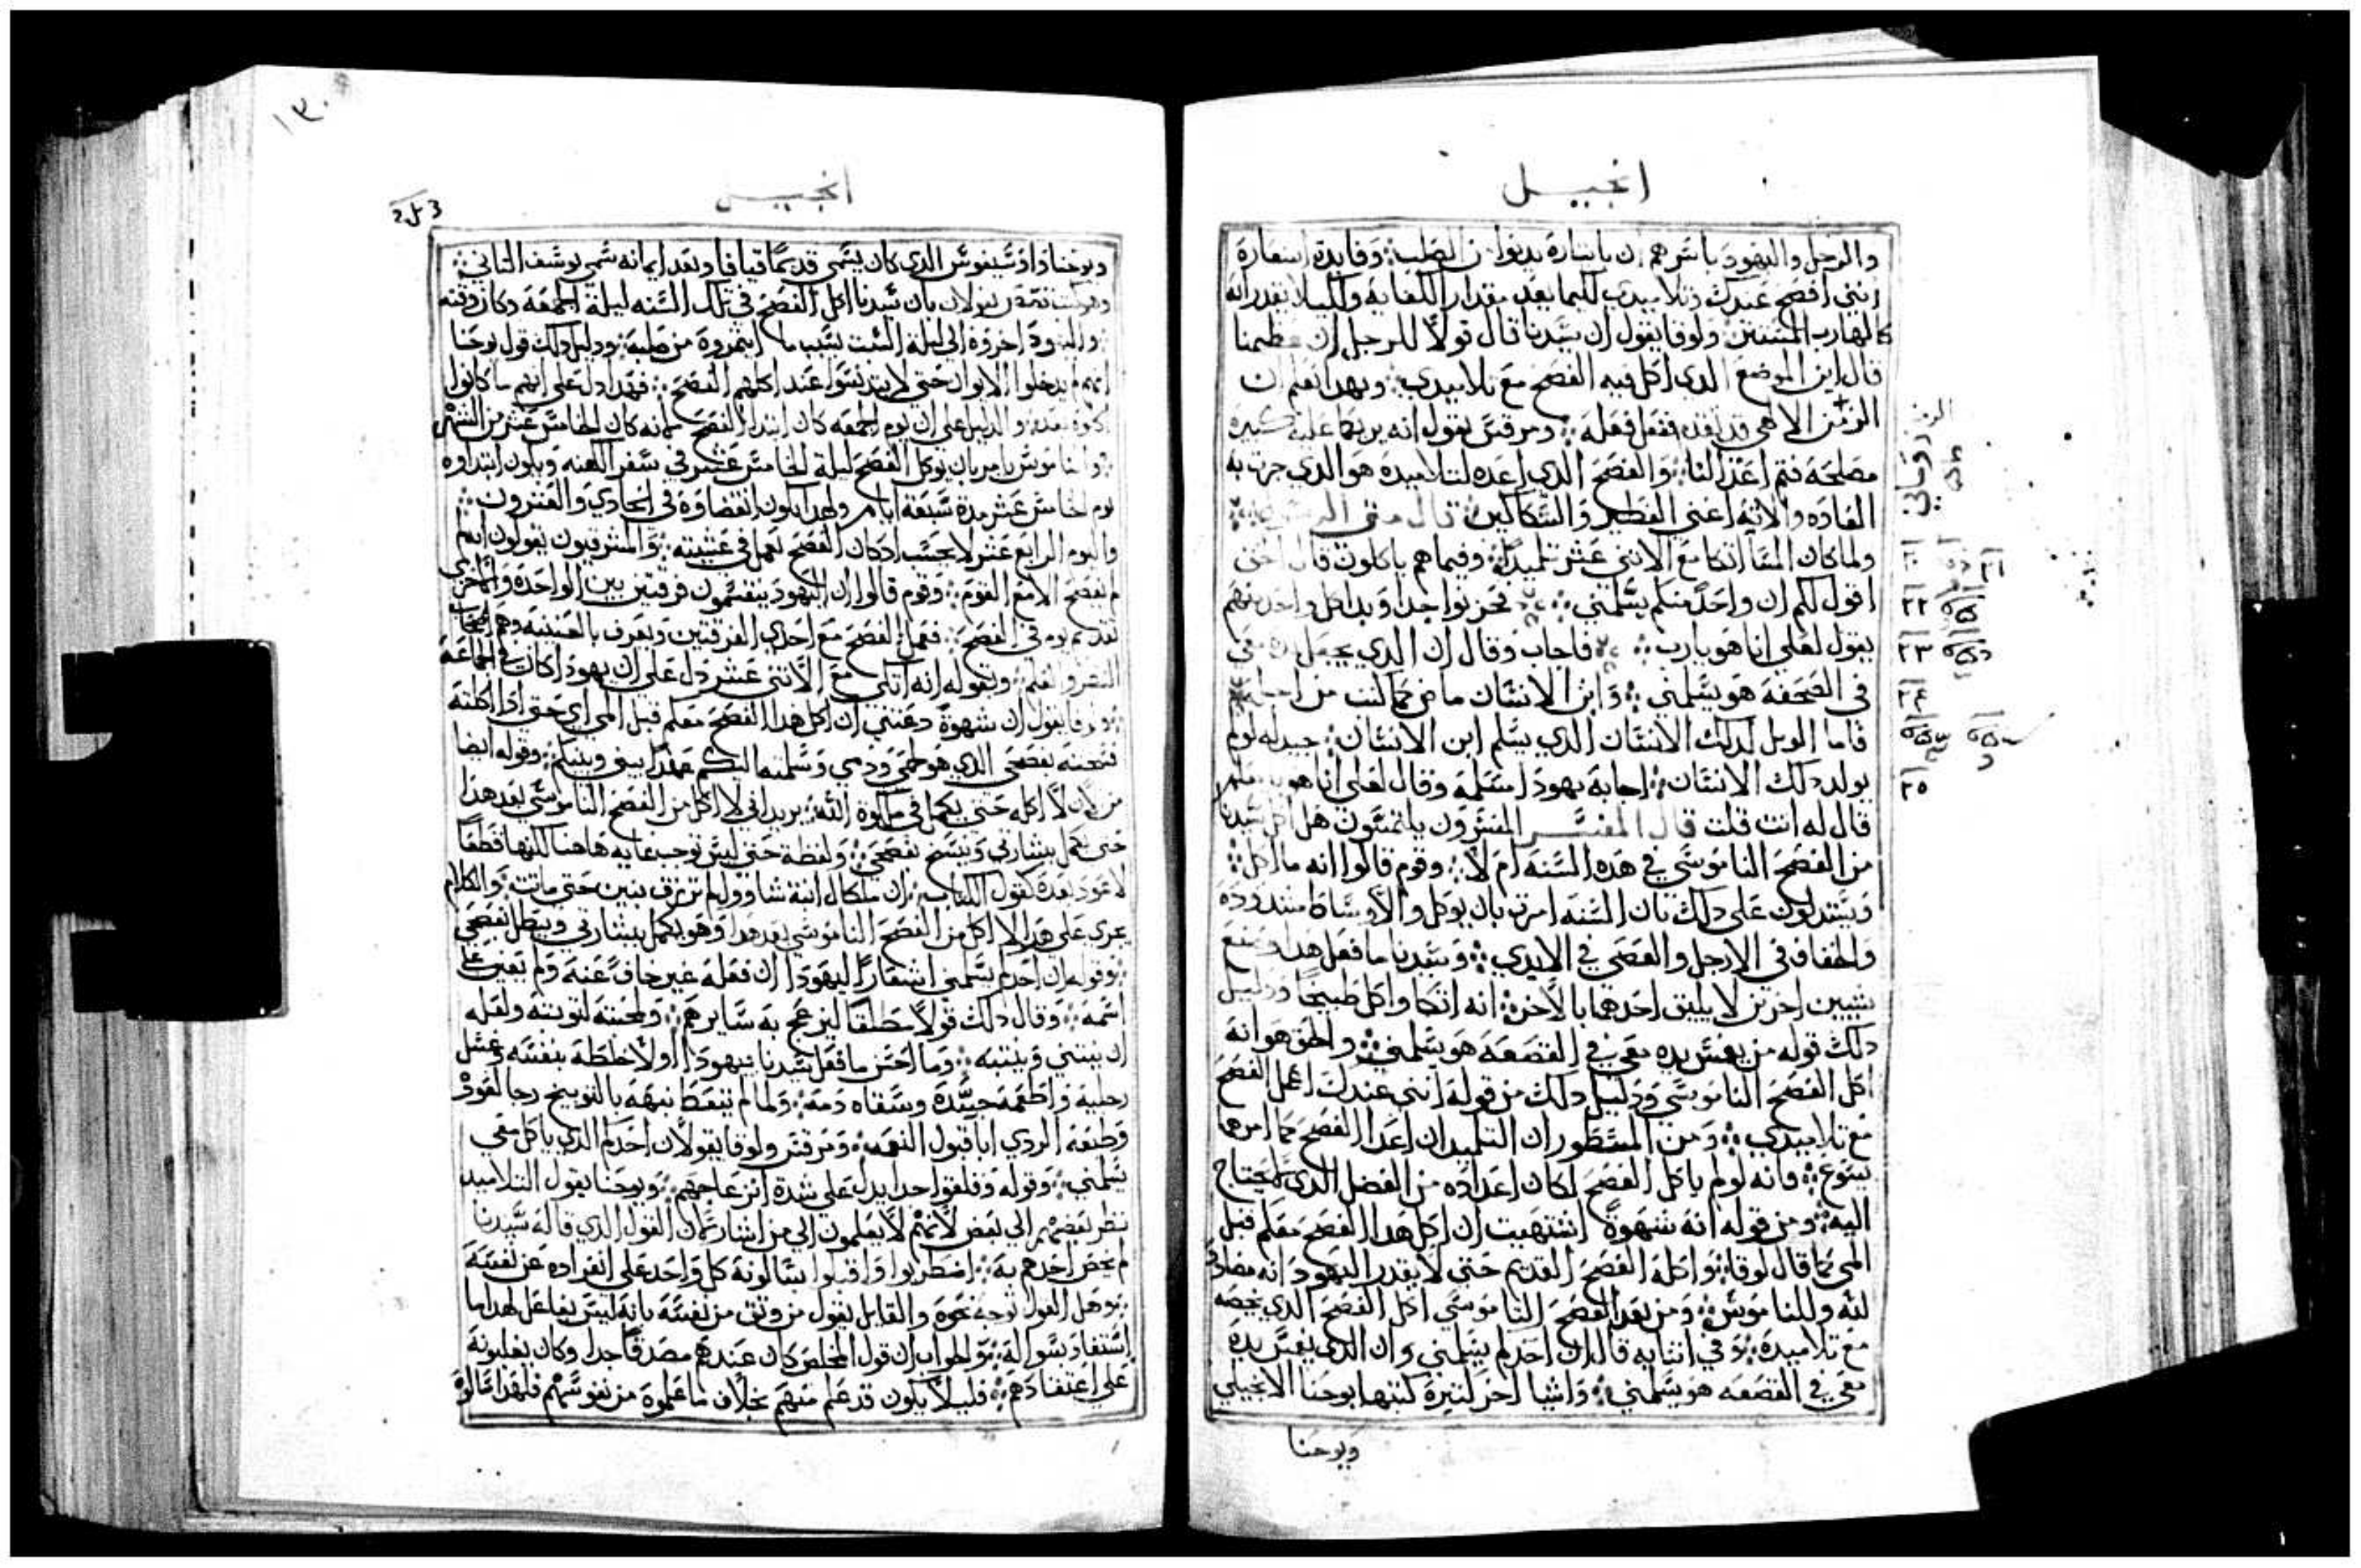 انجيل
والرجل واليهود باسرهم ان باينارة يدنوا الصلب وفايدة استعارة
انني افصح عندك وتلاميدي لكيما يعد مقدار الكفاية ولكيلا يقدر انه
كالهارب المستتر ولوقا يقول ان سيدنا قال قولا للرجل ان معلمنا
قال اين الموضع الدي اكل فيه الفصح مع تلاميدي وبهدا نعلم ان
الرمز الالاهي قد انفده ففعل فعله ومرقس يقول انه يريهما عليه كبيره
مصلحة فتم اعدا لنا والفصح الدي اعده التلاميده هو الدي جرت به
العاده والاته اعني الفطير والسكاكين قال متى
ولما كان المسا اتكا مع الاثني عشر تلميدا وفيما هم ياكلون قال
اقول لكم ان واحد منكم يسلمني فحزنوا جدا وبدا كل واحد منهم
يقول لعلي انا هو يارب فاجاب وقال ان الدي يجعل يده معي
في الصحفه هو يسلمني وابن الانسان ماض كما كتب من اجله
فاما الويل لدلك الانسان الدي يسلم ابن الانسان جيد له لو لم
يولد دلك الانسان اجابه يهودا مسلمه وقال لعلي انا هو يا معلم
قال له انت قلت قال المفسر المفسرون يلتمسون هل اكل سيدنا
من الفصح الناموسي في هده السنه ام لا وقوم قالوا انه ما اكل
ويستدلون على دلك بان السنه امرت بان يوكل والاوساط مشدوده
والخفاف في الارجل والعصي في الايدي وسيدنا ما فعل هدا وصنع
شيين اخرين لا يليق احدهما بالاخر انه اتكا واكل طبيخا ودليل
دلك قوله من يغمس يده معي في القصعه هو يسلمني والحق هو انه
اكل الفصح الناموسي ودليل دلك من قوله انني عندك اعمل الفصح
مع تلاميدي ومن المسطور ان التلميدان اعدا الفصح كما امرهما
يسوع فانه لو لم ياكل الفصح لكان اعداده من الفضل الدي لا يحتاج
اليه ومن قوله انه شهوة اشتهيت ان اكل هدا الفصح معكم قبل
المي كما قال لوقا واكله الفصح القديم حتى لا يقدر اليهود انه مضاد
لله وللناموس ومن بعد الفصح الناموسي اكل الفصح الدي يخصه
مع تلاميده وفي اثنايه قال ان احدكم يسلمني وان الدي يغمس يده
معي في القصعه هو يسلمني واشيا اخر كثيرة كتبها يوحنا الانجيلي
ويوحنا
٢١
٢٢
٢٣
٢٤
٢٥
١٣٠
انجيل
ويوحنا دادسيفوس الدي كان يسمى قديما قيافا وبعد ايمانه سمي يوسف الثاني
يقولان بان سيدنا اكل الفصح في تلك السنه ليلة الجمعة وكان وقته
واليهود اخروه الى ليلة السبت بسبب ما ايتمروه من صلبه ودليل دلك قول يوحنا
انهم لم يدخلوا الايوان حتى لا يتدنسوا عند اكلهم الفصح فهدا دل على انهم ما كانوا
اكلوه بعد والدليل على ان يوم الجمعه كان ابتدا الفصح انه كان الخامس عشر من الشهر
والناموس يامر بان يوكل الفصح ليلة الخامس عشر في سفر الكهنه ويكون ابتداوه
يوم الخامس عشر مدة سبعة ايام ولهدا يكون انقضاوه في الحادي والعشرون
واليوم الرابع عشر لا يحسب ادكان الفصح يعمل في عشيته والمشرقيون يقولون
الفصح الا مع القوم وقوم قالوا ان اليهود ينقسمون فرقتين بين الواحدة والاخرى
تقدم يوم في الفصح فعمل الفصح مع احدى الفرقتين ويعرف بالعتيقه وهم اصحاب
وبقوله انه اتكى مع الاثني عشر دل على ان يهودا كان في الجماعة
ولوقا يقول ان شهوة دعتني ان اكل هدا الفصح معكم قبل المي اي حتى ادا اكلته
نسخته بفصحي الدي هو لحمي ودمي وسلمتهما اليكم عهدا بيني وبينكم وقوله ايضا
من الان لا اكله حتى يكمل في ملكوة الله يريد اني لا اكل من الفصح الناموسي بعد هدا
حتى تكمل بشارتي وينسخ بفصحي ولفظة حتى ليس توجب غايه هاهنا لكنها قطعا
لا عود بعده كقول الكتاب ان ملكال ابنة شاوول لم ترزق بنين حتى ماتت والكلام
يجري على هدا لا اكل من الفصح الناموسي بعد هدا وهو يكمل ببشارتي ويبطل بفصحي
وقوله ان احدكم يسلمني اشعارا ليهودا ان فعله غير خاف عنه ولم يعين على
اسمه وقال دلك قولا مطلقا لينزعج به سايرهم ولمحبته لتوبته ولعله
ان يستنى وينتبه وما احسن ما فعل سيدنا بيهودا اولا خلطه بنفسه وغسل
رجليه واطعمه جسده وسقاه دمه ولما لم يتعظ نبهه بالتوبيخ رجا لعوده
وطبعه الردي ابا قبول النعمه ومرقس ولوقا يقولان احدكم الدي ياكل معي
يسلمني وقوله وقلقوا جدا يدل على شدة انزعاجهم ويوحنا يقول التلاميد
نظر بعضهم الى بعض لانهم لا يعلمون الى من اشار لان القول الدي قاله سيدنا
لم يخص احدهم به اضطربوا واقبلوا يسالونه كل واحد على انفراده عن نفسه
هل القول توجه نحوه والقايل يقول من وثق من نفسه بانه ليس بفاعل لهدا ما
استفاد بسواله والجواب ان قول المخلص كان عندهم مصدقا جدا وكان يغلبونه
على اعتقادهم فليلا يكون قد علم منهم بخلاف ما علموه من نفوسهم فلهدا سالوا